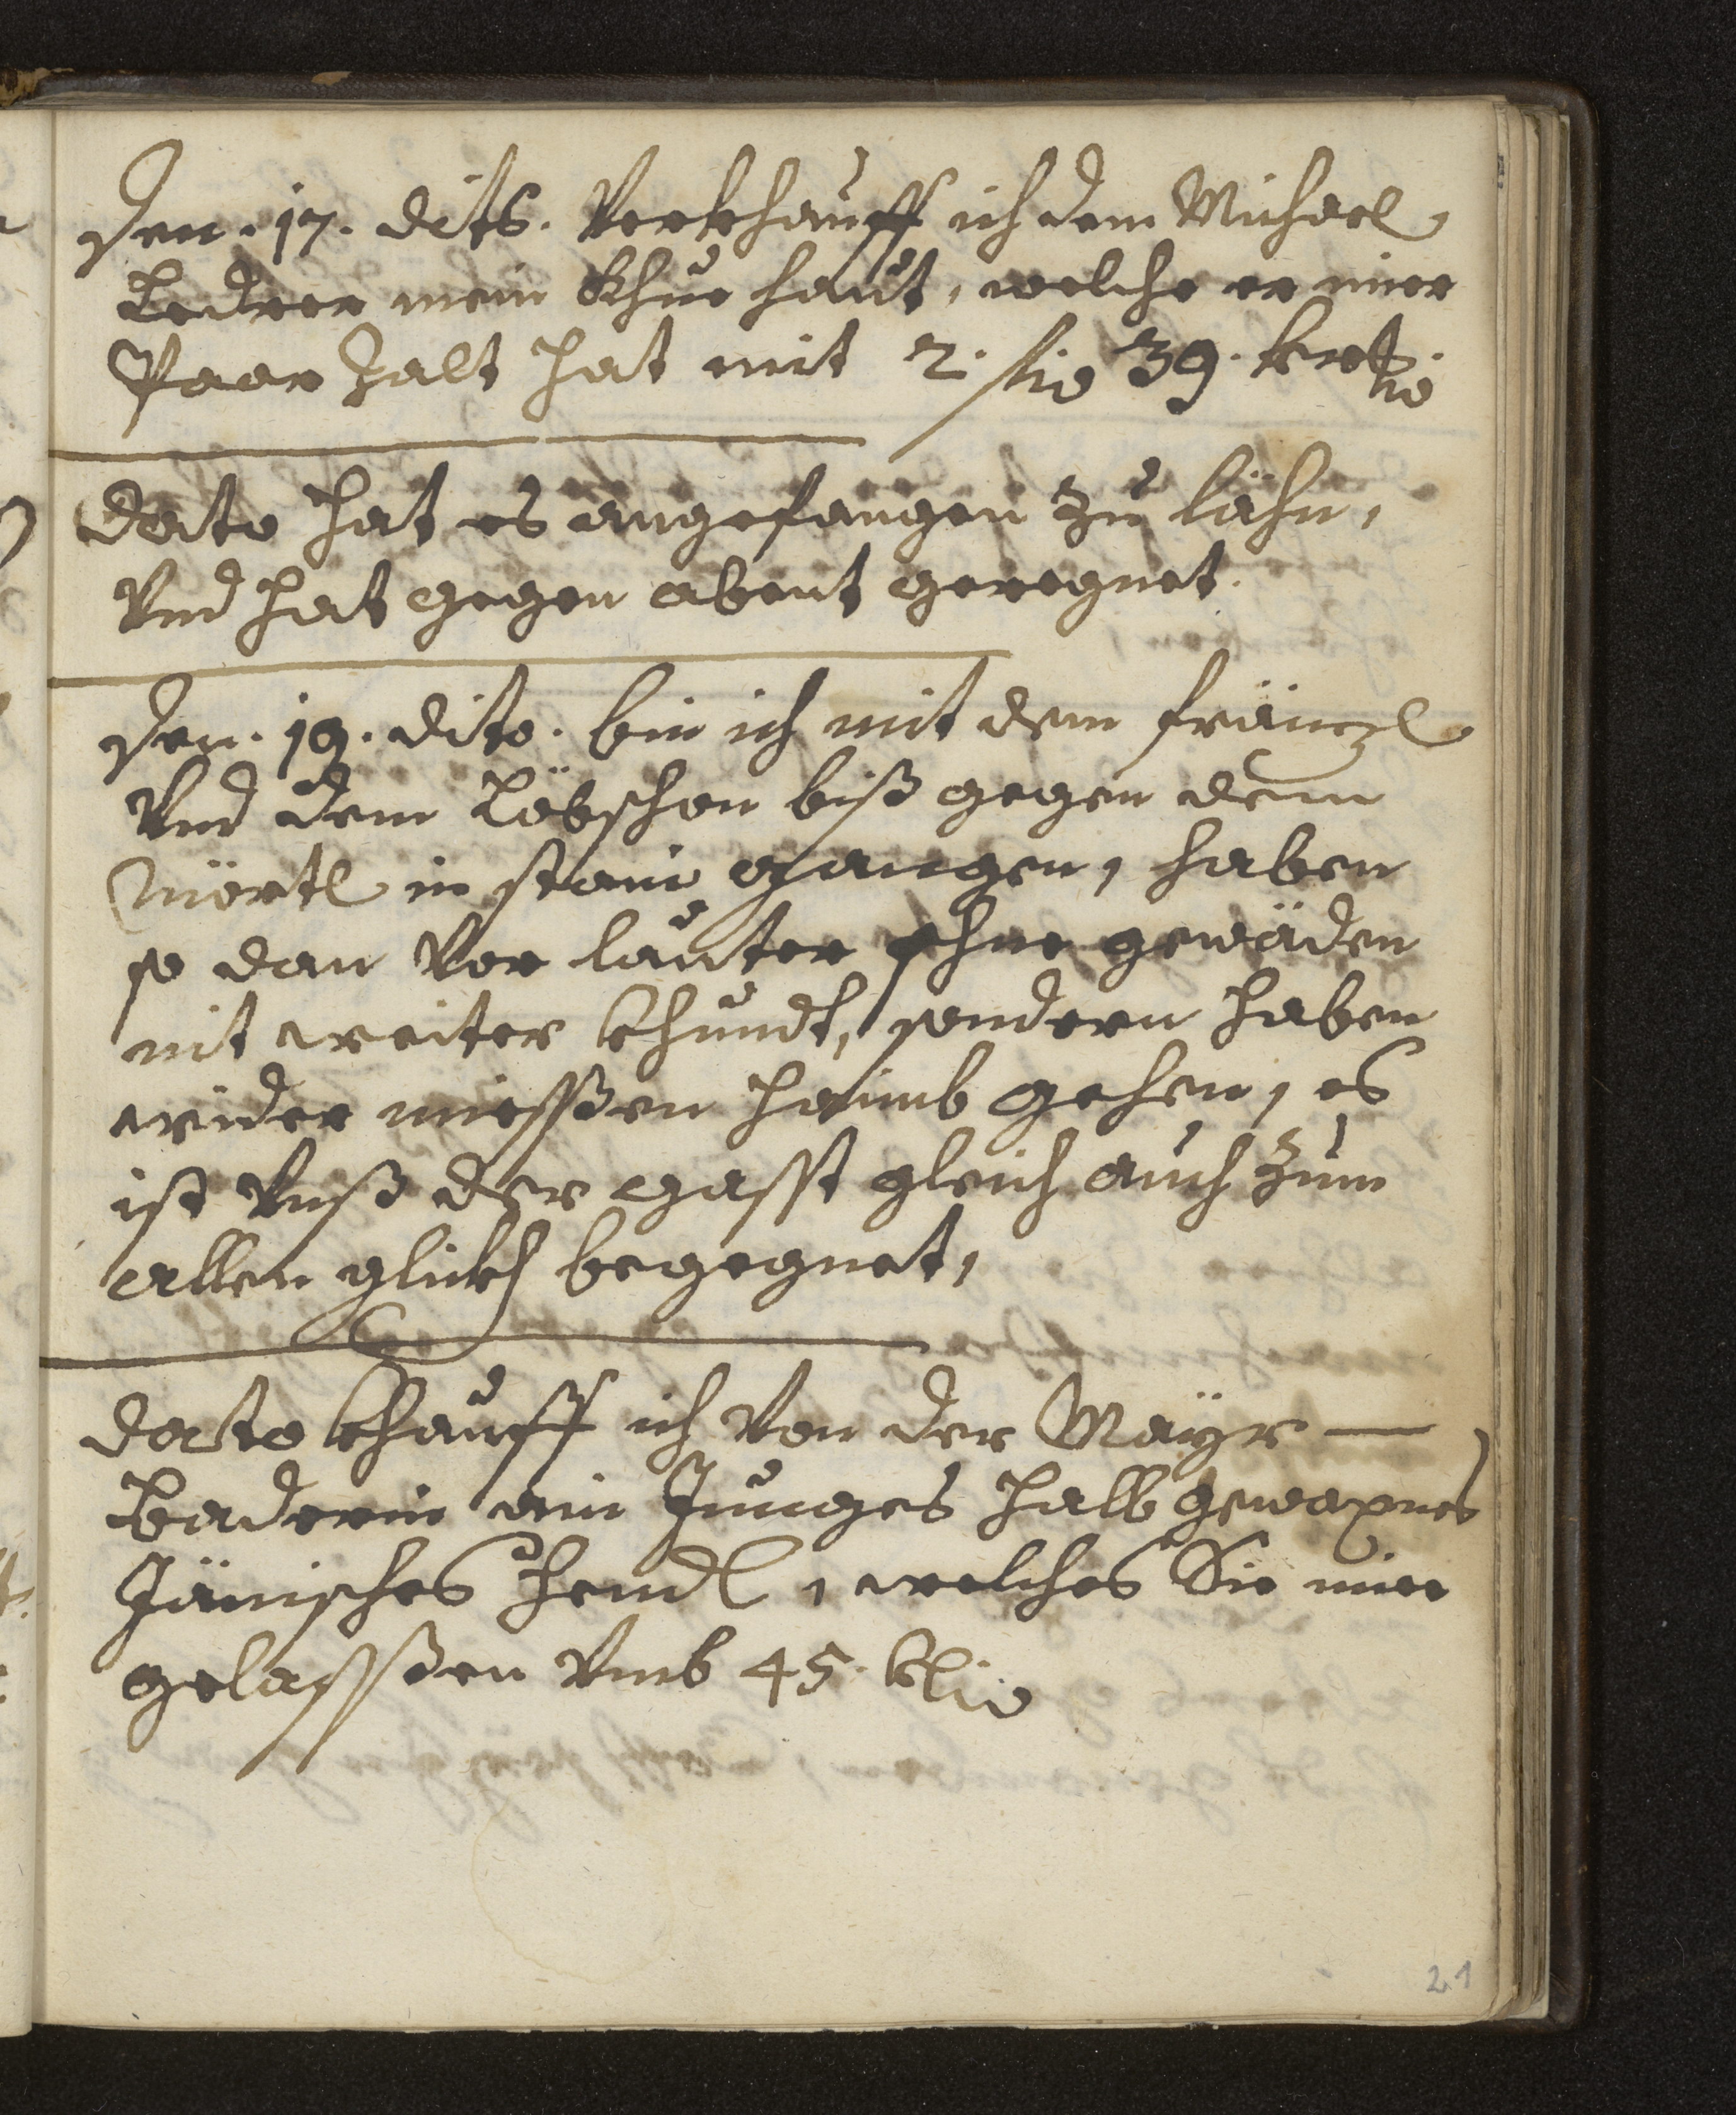 Den. 17. dits. Verkhauff ich dem Michael
Ledrer mein Khue haut, welche er mier
Paar zalt hat mit 2. f 39. kr
dato hat es angefangen zu lähn,
Vnd hat gegen abent geregnet.
Den. 19. dito. bin ich mit dem fränzl
Vnd dem Löbschen biß gegen dem
Mörtl in stain gangen, haben
so dan Vor lauter schne gewäden
nit weiter khundt, sondern haben
wider miessen haimb gehen, es
ist Vnß der gasst gleich auch zum
allen glickh begegnet,
dato khauff ich Von der Mayr —
baderin ain Junges halb gewaxnes
Jänisches hendl, welches Sie mier
gelasssen Vmb 45. k
21